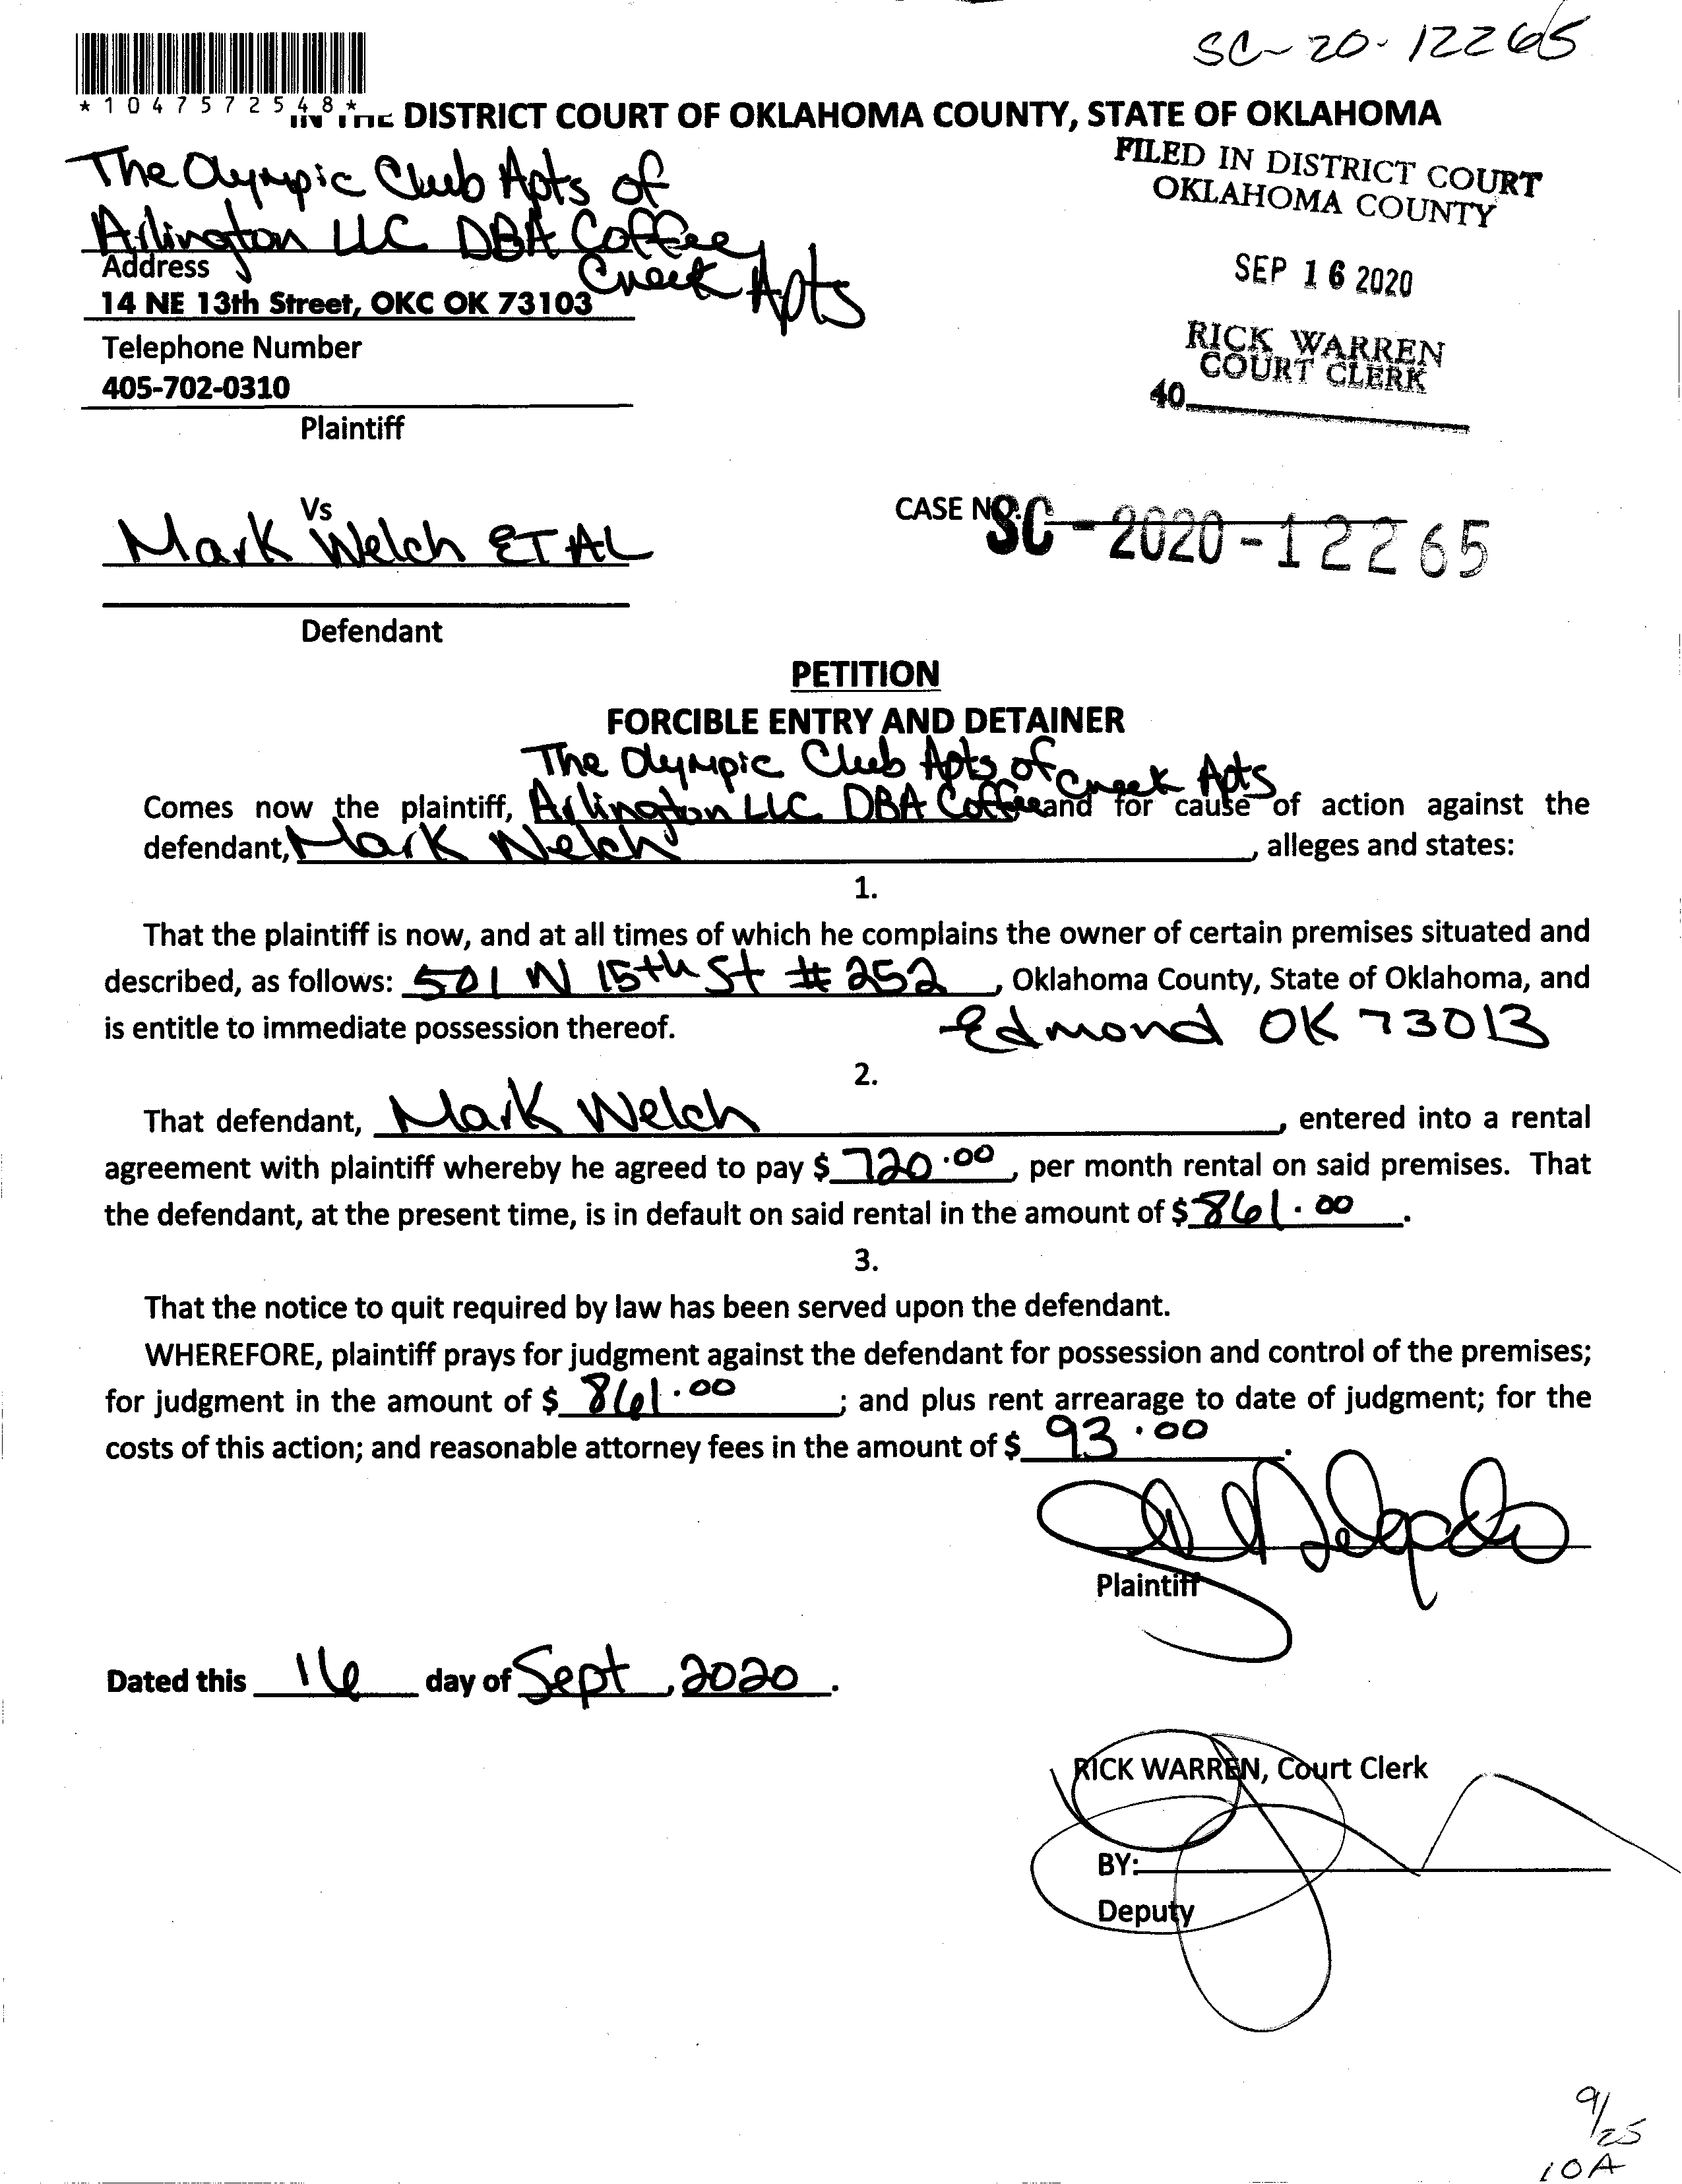 SC-20-12265
*1047572548*
IN THE DISTRICT COURT OF OKLAHOMA COUNTY, STATE OF OKLAHOMA
The Olympic Club Apts of
Arlington LLC DBA Coffee
Creek Apts
FILED IN DISTRICT COURT
OKLAHOMA COUNTY
SEP 16 2020
RICK WARREN
COURT CLERK
40
Address
14 NE 13th Street, OKC OK 73103
Telephone Number
405-702-0310
Plaintiff
Vs
Mark Welch ET AL
CASE NO:
SC-2020-12265
Defendant
PETITION
FORCIBLE ENTRY AND DETAINER
The Olympic Club Apts of Creek Apts
Comes now the plaintiff, Arlington LLC DBA Coffee and for cause of action against the
defendant, Mark Welch, alleges and states:
1.
That the plaintiff is now, and at all times of which he complains the owner of certain premises situated and
described, as follows: 501 N 15th St # 252, Oklahoma County, State of Oklahoma, and
is entitle to immediate possession thereof. Edmond OK 73013
2.
That defendant, Mark Welch, entered into a rental
agreement with plaintiff whereby he agreed to pay $ 720.00, per month rental on said premises. That
the defendant, at the present time, is in default on said rental in the amount of $ 861.00.
3.
That the notice to quit required by law has been served upon the defendant.
WHEREFORE, plaintiff prays for judgment against the defendant for possession and control of the premises;
for judgment in the amount of $ 861.00; and plus rent arrearage to date of judgment; for the
costs of this action; and reasonable attorney fees in the amount of $ 93.00.
Plaintiff
Dated this 16 day of Sept, 2020.
RICK WARREN, Court Clerk
BY:
Deputy
9/25
10A